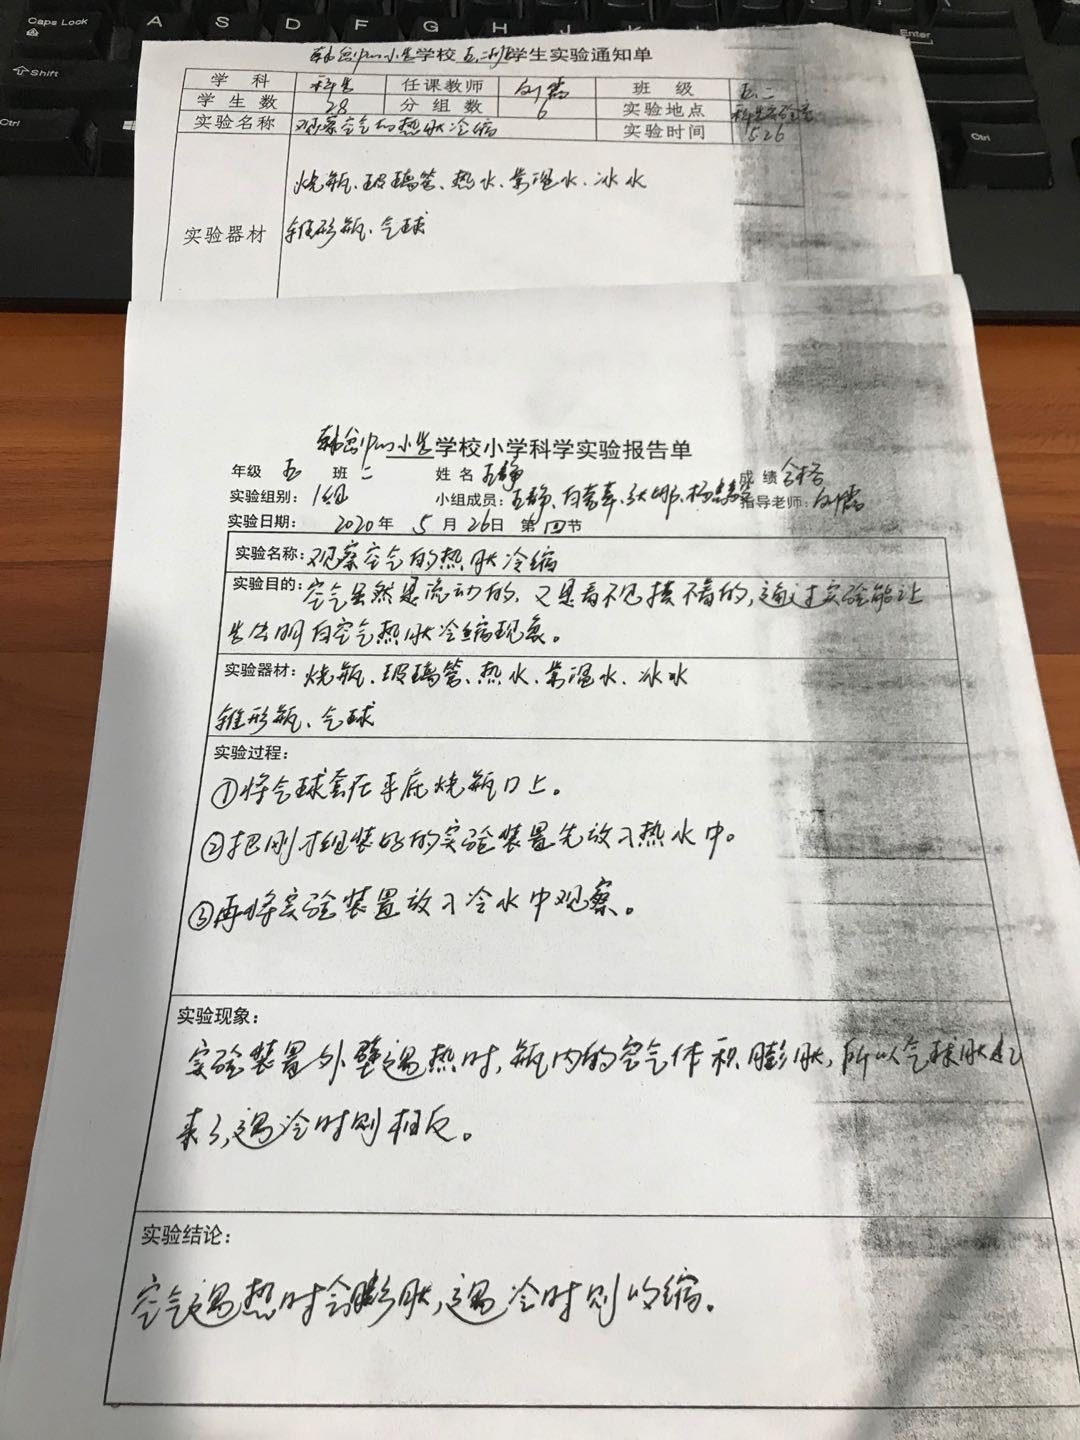 Caps Lock
A S D F G H J K L
Enter
Shift
Ctrl
Ctrl
小学学校五.二班学生实验通知单
学 科 科学 任课教师 班 级 五.二
学 生 数 28 分 组 数 6 实验地点 科学实验室
实验名称 观察空气的热胀冷缩 实验时间 5.26
烧瓶、玻璃管、热水、常温水、冰水
实验器材 锥形瓶、气球
小学学校小学科学实验报告单
年级 五 班 二 姓 名 王静 成 绩 合格
实验组别: 1组 小组成员: 王静、 指导老师:
实验日期: 2020年 5月 26日 第四节
实验名称: 观察空气的热胀冷缩
实验目的: 空气虽然是流动的、又是看不见摸不着的,通过实验能让
学生明白空气热胀冷缩现象。
实验器材: 烧瓶、玻璃管、热水、常温水、冰水
锥形瓶、气球
实验过程:
①将气球套在平底烧瓶口上。
②把刚才组装好的实验装置先放入热水中。
③再将实验装置放入冷水中观察。
实验现象:
实验装置外壁遇热时,瓶内的空气体积膨胀,所以气球胀起
来了,遇冷时则相反。
实验结论:
空气遇热时会膨胀,遇冷时则收缩。